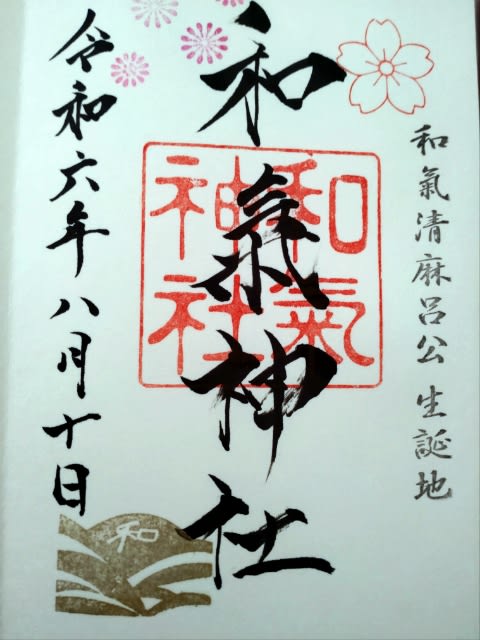 和氣清麻呂公 生誕地
和氣神社
和氣
神社
令和六年八月十日
和